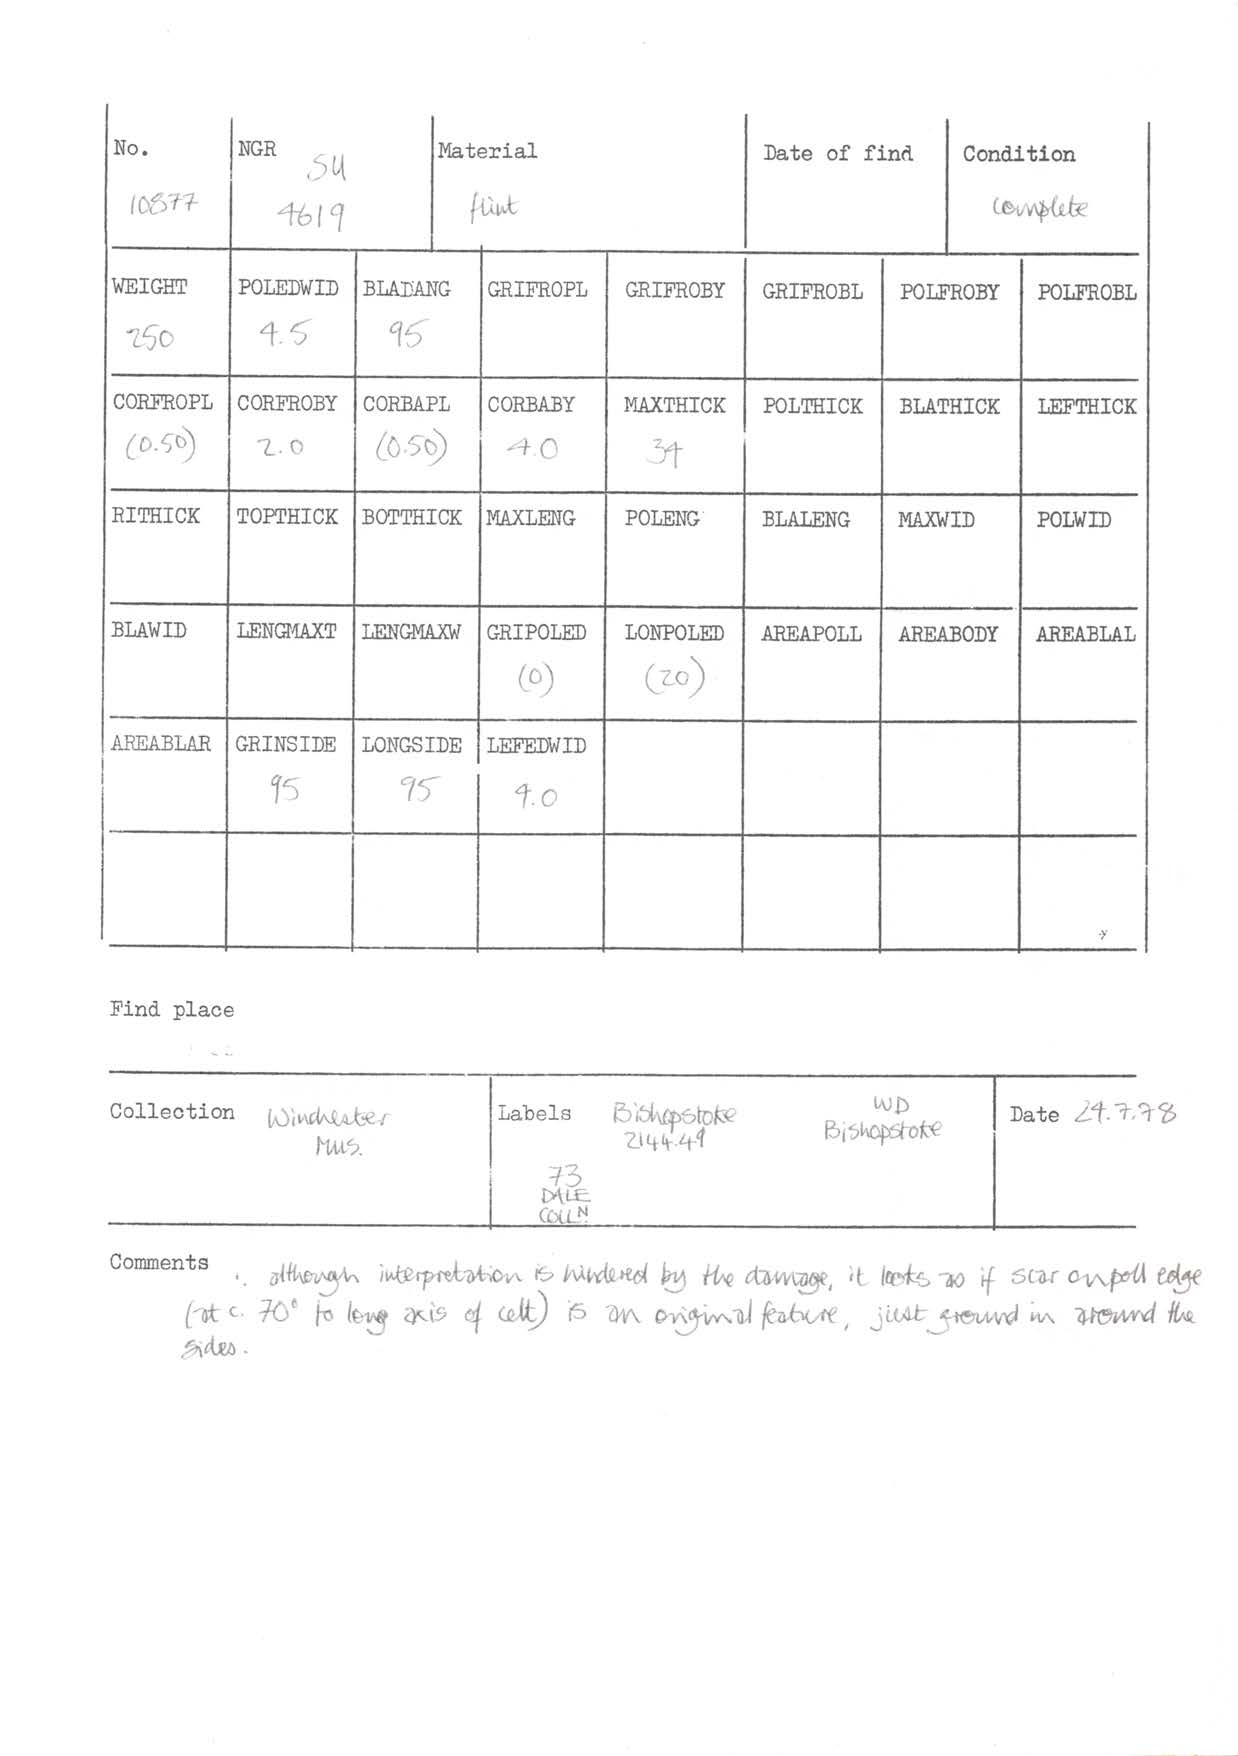 No. NGR Material Date of find Condition
SU
10877 4619 flint complete
WEIGHT POLEDWID BLADANG GRIFROPL GRIFROBY GRIFROBL POLFROBY POLFROBL
250 4.5 95
CORFROPL CORFROBY CORBAPL CORBABY MAXTHICK POLTHICK BLATHICK LEFTHICK
(0.50) 2.0 (0.50) 4.0 34
RITHICK TOPTHICK BOTTHICK MAXLENG POLENG BLALENG MAXWID POLWID
BLAWID LENGMAXT LENGMAXW GRIPOLED LONPOLED AREAPOLL AREABODY AREABLAL
(0) (20)
AREABLAR GRINSIDE LONGSIDE LEFEDWID
95 95 4.0
Find place
Collection Winchester
Mus.
Labels Bishopstoke
2144.49
WD
Bishopstoke
73
DALE
COLLN.
Date 24.7.78
Comments
∴ although interpretation is hindered by the damage, it looks as if scar on poll edge
(at c. 70° to long axis of celt) is an original feature, just ground in around the
sides.